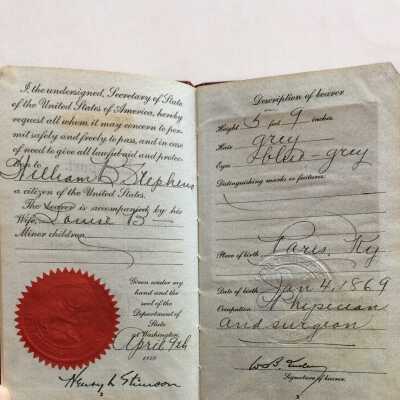 I, the undersigned, Secretary of State
of the United States of America, hereby
request all whom it may concern to per-
mit safely and freely to pass, and in case
of need to give all lawful aid and protec-
tion to
William B Stephens
a citizen of the United States.
The bearer is accompanied by his
Wife, Louise B
Minor children,
Given under my
hand and the
seal of the
Department of
State
at Washington,
April 9th
Henry L Stimson
2
Description of bearer
Height 5 feet 9 inches
Hair grey
Eyes blue-grey
Distinguishing marks or features:
Place of birth Paris, Ky
Date of birth Jan 4, 1869
Occupation Physician
and surgeon
Signature of bearer.
3